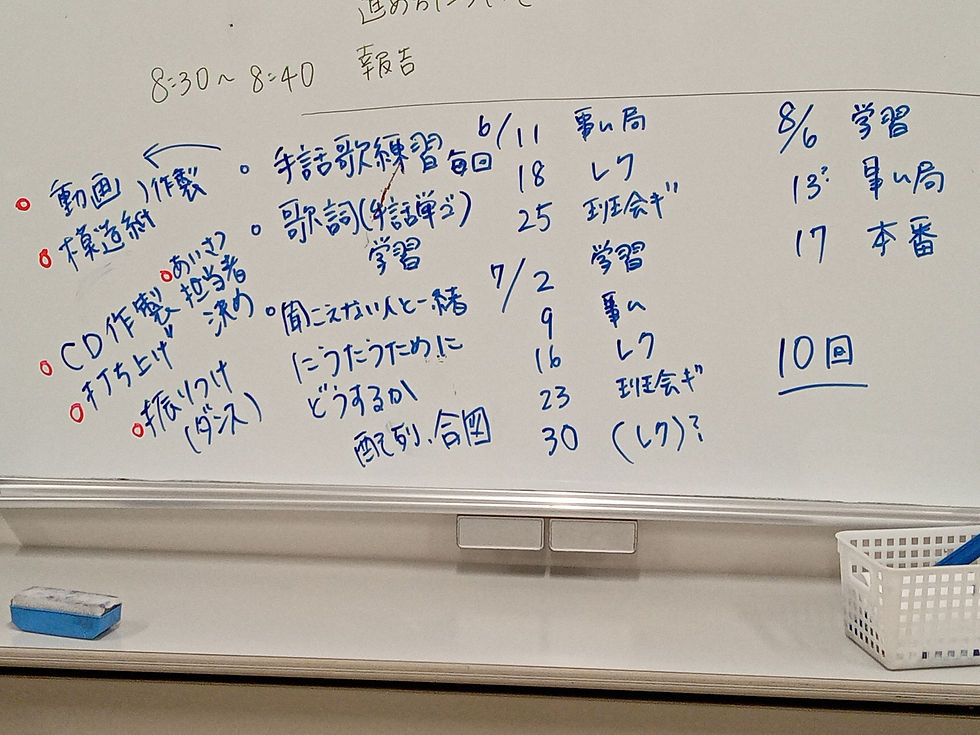 進め方について
8:30〜8:40 報告
動画 作製
模造紙
あいさつ
担当者
決め
CD作製
打ち上げ
振りつけ
(ダンス)
手話歌練習 毎回
歌詞(手話単ゴ)
学習
聞こえない人と一緒
にうたうために
どうするか
配列、合図
6/11 事ム局
18 レク
25 班会ギ
7/2 学習
9 事ム
16 レク
23 班会ギ
30 (レク)?
8/6 学習
13? 事ム局
17 本番
10回